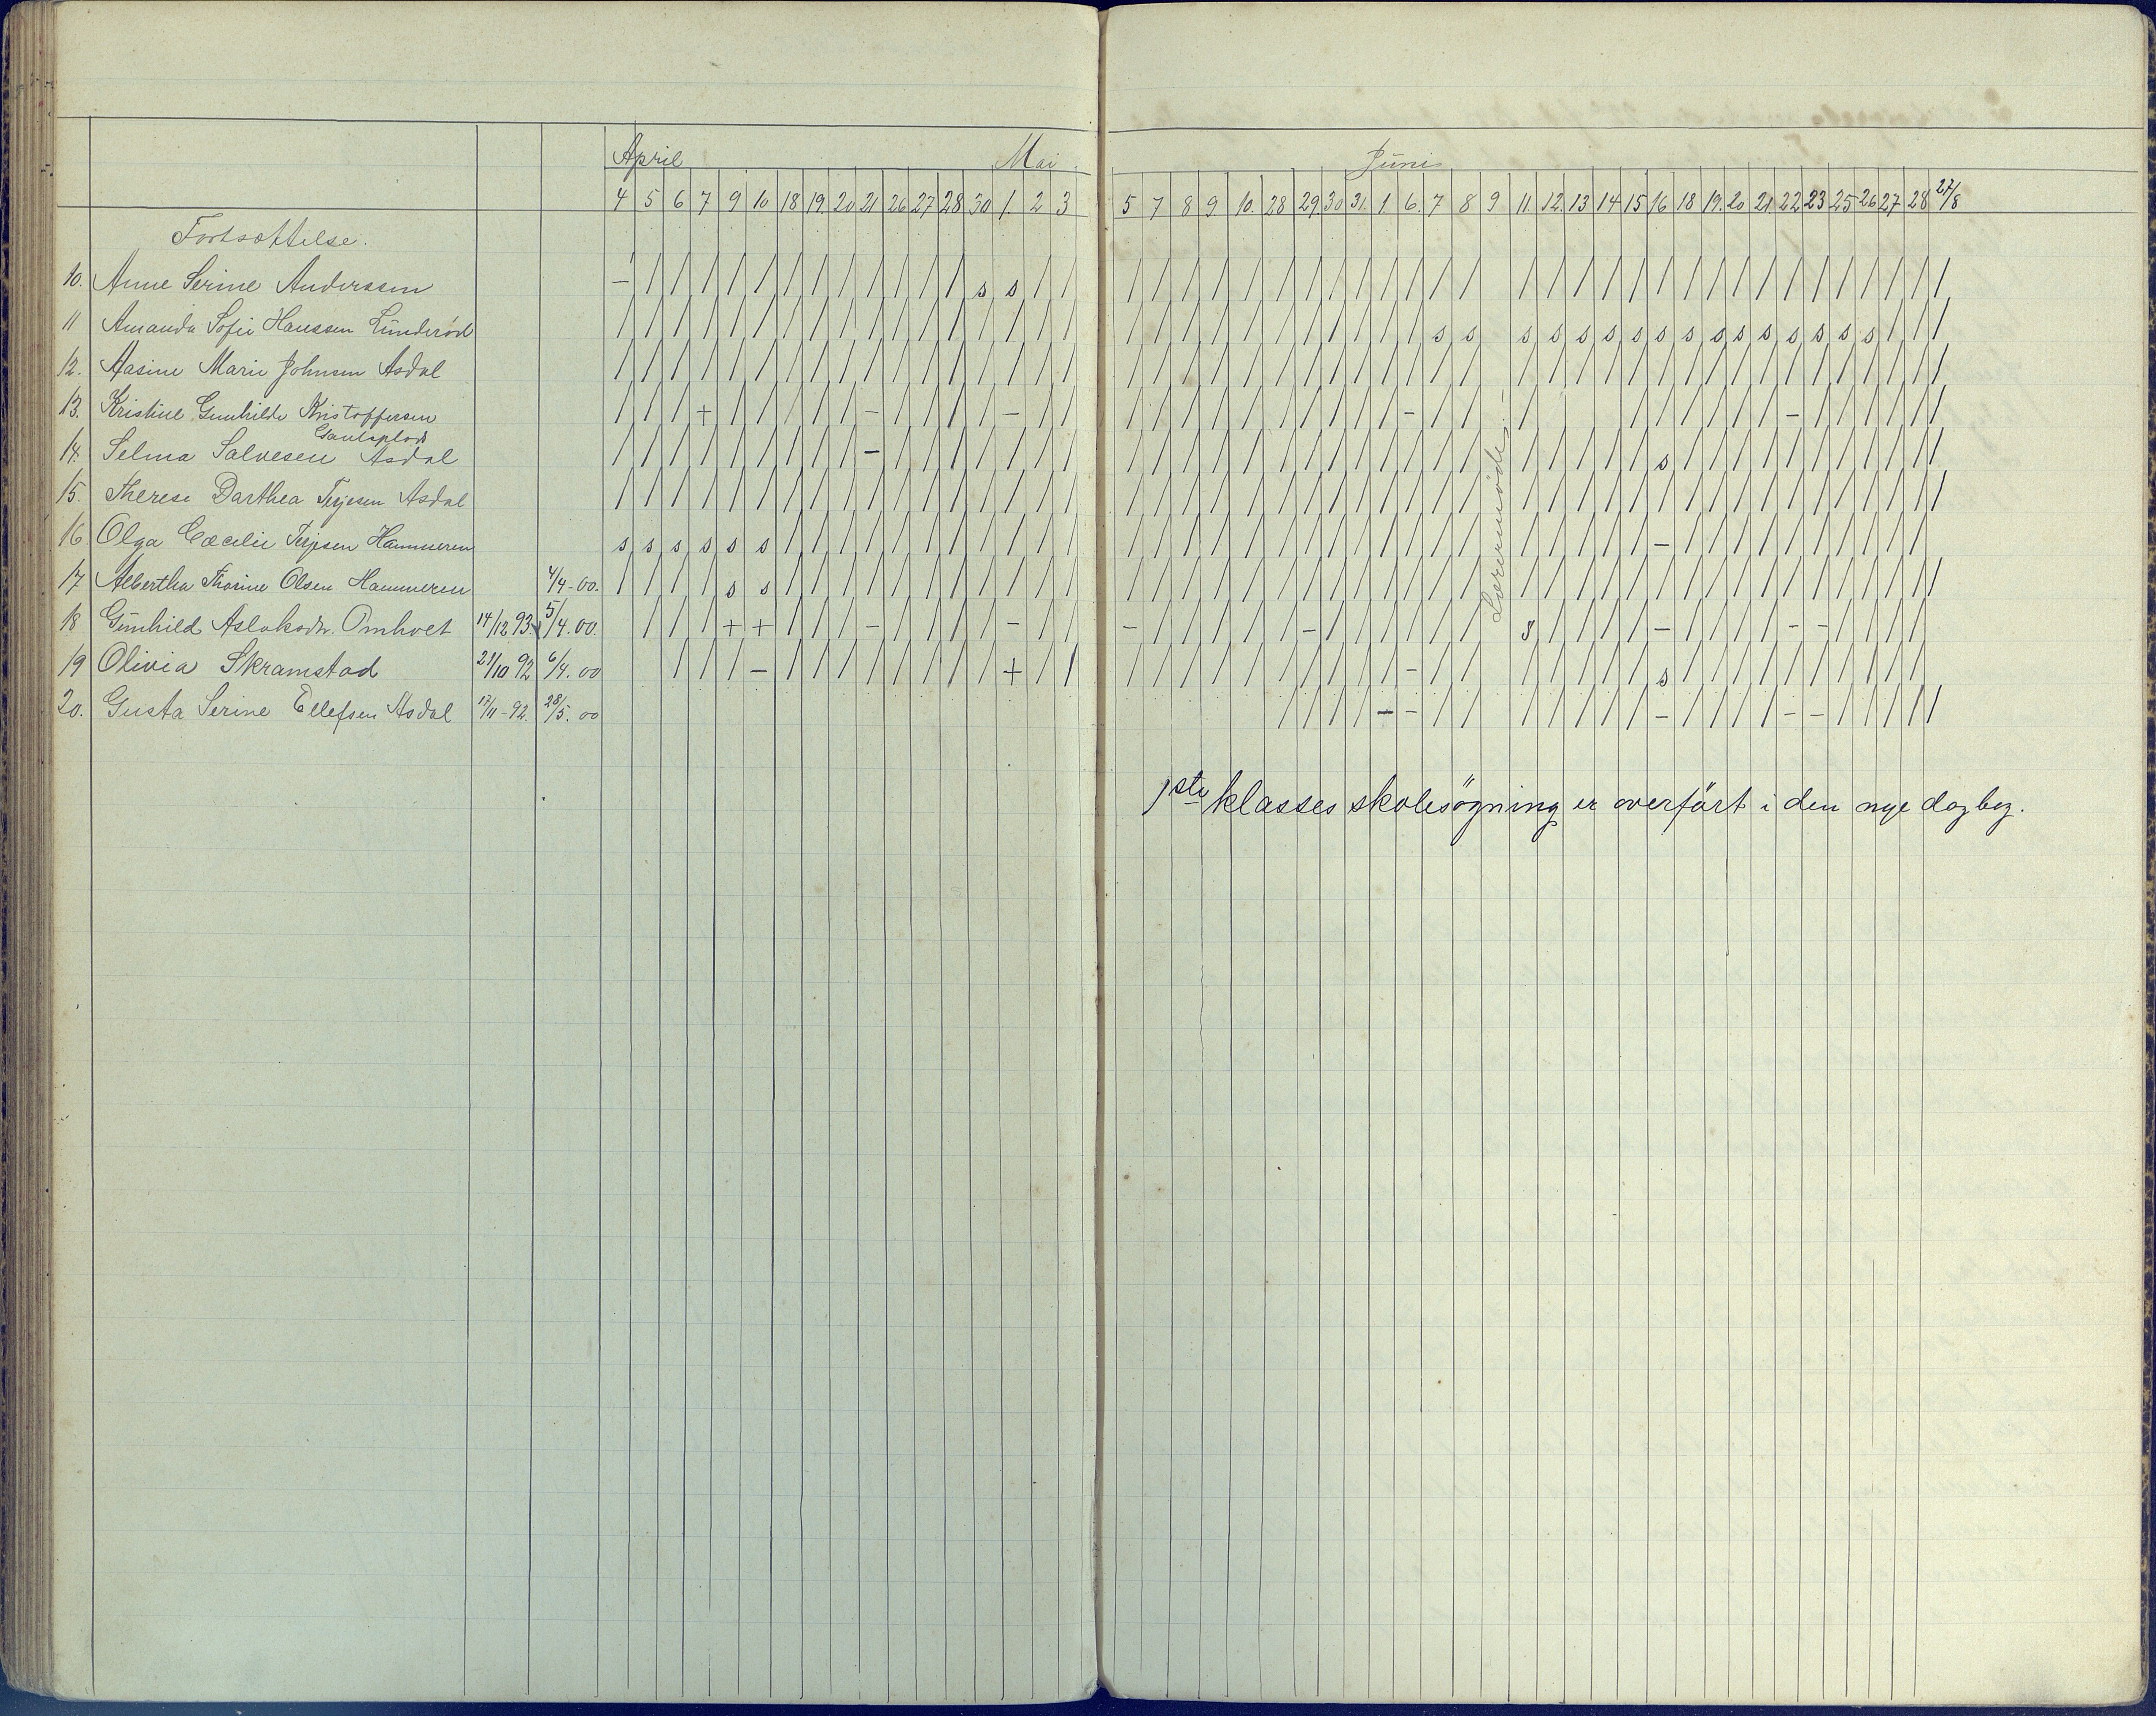 April Mai Juni
4 5 6 7 9 10 18 19. 20 21 26 27 28 30 1. 2 3 5 7 8 9 10. 28 29 30 31. 1 6. 7 8 9 11. 12. 13 14 15 16 18 19. 20 21 22 23 25 26 27 28 27/8
Fortsættelse.
10. Anne Serine Anderssen — / / / / / / / / / / / / s s / / / / / / / / / / / / / / / / / / / / / / / / / / / / / / / /
11 Amanda Sofie Hanssen Lunderød / / / / / / / / / / / / / / / / / / / / / / / / / / / / s s s s s s s s s s s s s s s / / /
12. Aasine Marie Johnsen Asdal
13. Kristine Gunhilde Kristoffersen
14. Selma Salvesen Asdal
15 Therese Darthea Terjesen Asdal
16. Olga Cæcilie Terjesen Hammeren s s s s s s
17 Albertha Thorine Olsen Hammeren 4/4-00. s s
18 Gunhild Aslaksdtr. Omholt 14/12 93. 5/4.00.
19 Olivia Skramstad 21/10 92 6/4.00
20. Gusta Serine Ellefsen Asdal 17/11-92. 28/5.00
Lærermöde.-
1ste klasses skolesögning er overfört i den nye dagbog.